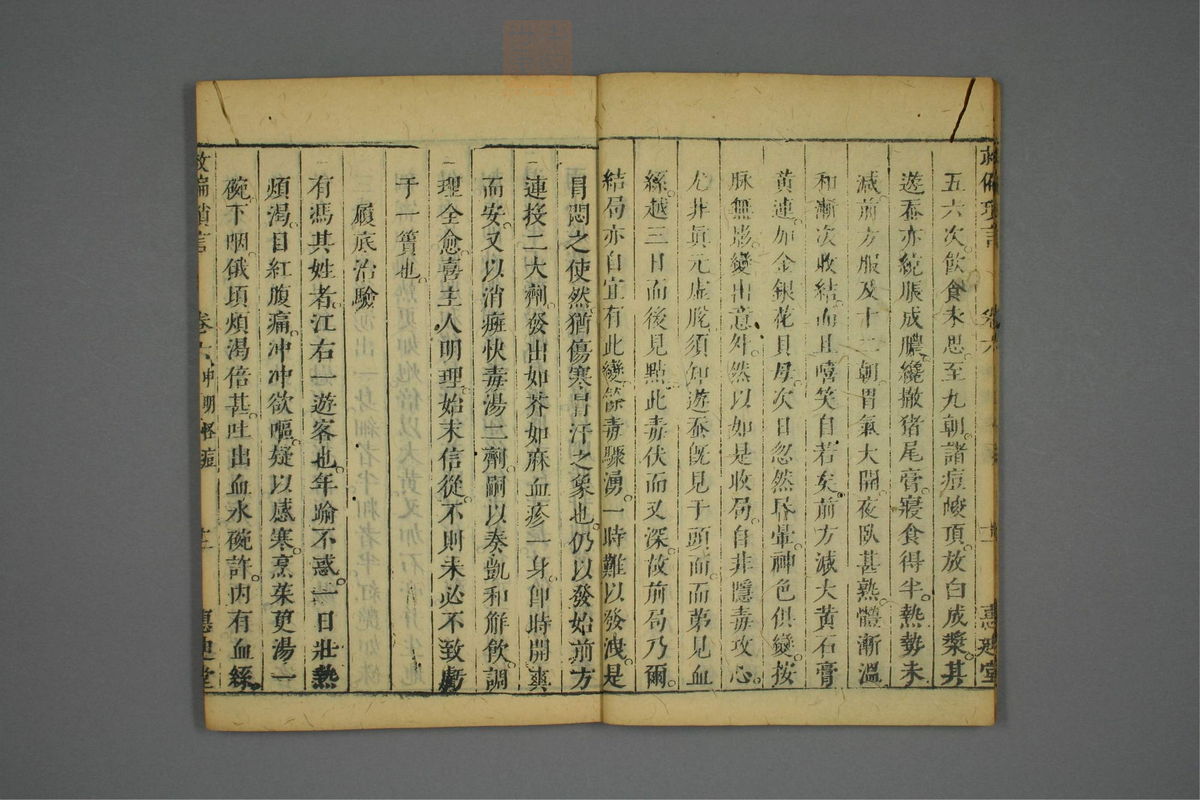 五六次。飲食未思。至九朝。諸痘峻頂。放白成漿。其
遊蚕亦統脹成膿。纔撤猪尾膏。寢食得半。熱勢未
減。前方服及十二朝。胃氣大開。夜臥甚熟。體漸溫
和。漸次收結。而且嘻笑自若矣。前方減大黃石膏
黃連。加金銀花貝母。次日忽然昏暈。神色俱變。按
脉無影。變出意外。然以如是收局。自非隱毒攻心。
尤非眞元虛脫。須知遊蚕旣見于頭面。而第見血
絲。越三日而後見點。此毒伏而又深。故前局乃爾。
結局亦自宜有此變。餘毒驟湧。一時難以發洩。是
冒悶之使然。猶傷寒冒汗之象也。仍以發始前方
連投二大劑。發出如芥如麻血疹一身。卽時開爽
而安。又以消痱快毒湯二劑。嗣以奏凱和解飲。調
理全愈。喜主人明理。始末信從。不則未必不致虧
于一簣也。
履底治驗
有馮其姓者。江右一遊客也。年踰不惑。一日壯熱
煩渴。目紅腹痛。冲冲欲嘔。疑以感寒。烹茱萸湯一
碗。下咽俄頃。煩渴倍甚。吐出血水碗許。內有血絲
卷六
惠迪堂